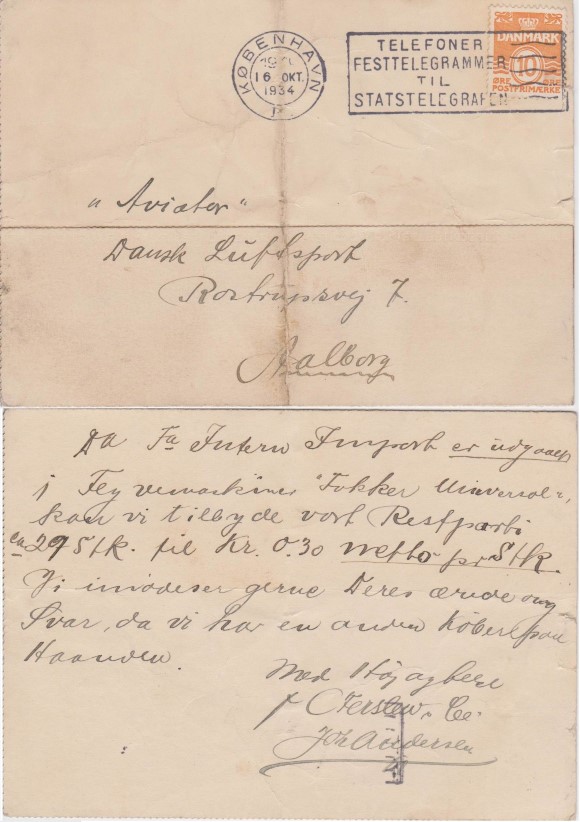 KØBENHAVN
16 OKT.
1934
TELEFONER
FESTTELEGRAMMER
TIL
STATSTELEGRAFEN
DANMARK
10
ØRE ØRE
POSTFRIMÆRKE
"Aviator"
Dansk Luftsport
Rostrupsvej 7.
Aalborg
Da Fa Intern Import er udgaaet
i Flyvemaskinen "Fokker Universal",
kan vi tilbyde vort Restparti
ca 29 Stk. til Kr. 0.30 netto pr Stk.
Vi imødeser gerne Deres ærede omg
Svar, da vi har en anden Køber paa
Haanden.
Med Højagtelse
Joh Andersen